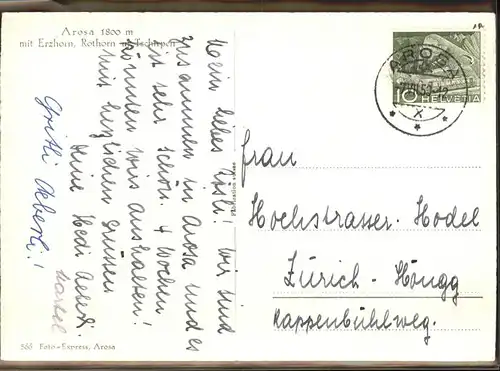 Arosa 1800 m
mit Erzhorn, Rothorn u. Tschirpen
Mein liebes Rösli! Wir sind
zusammen in Arosa und es
ist sehr schön. 4 Wochen
könnten wir's aushalten!
Mit herzlichen Grüssen
Deine Hedi Aeberli.
Marcel
Gritli Aeberli!
388 Foto-Express, Arosa
AROSA
10 HELVETIA
Frau
Hochstrasser-Hodel
Zürich-Höngg
Kappenbühlweg.